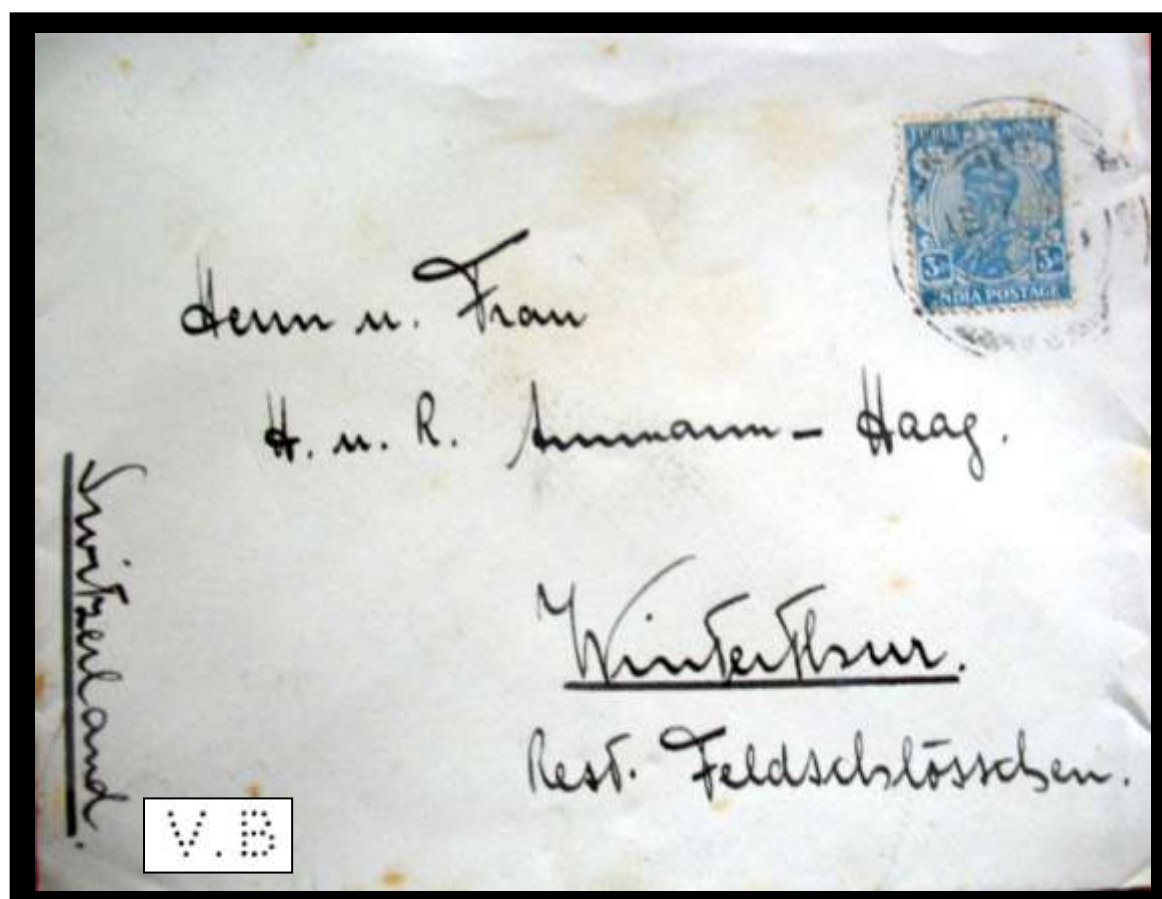 INDIA POSTAGE
3A 3A
Herrn u. Frau
H. u. R. Ammann - Haag.
Winterthur.
Rest. Feldschlösschen.
Switzerland.
V.B